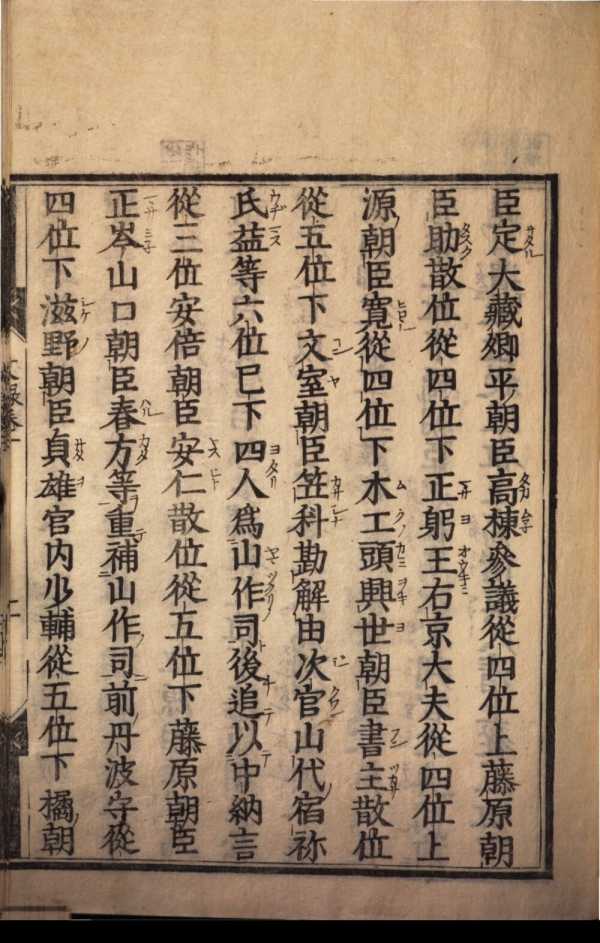 臣定大藏卿平朝臣高棟參議從四位上藤原朝
臣助散位從四位下正躬王右京大夫從四位上
源朝臣寬從四位下木工頭興世朝臣書主散位
從五位下文室朝臣笠科勘解由次官山代宿祢
氏益等六位已下四人爲山作司後追以中納言
從三位安倍朝臣安仁散位從五位下藤原朝臣
正岑山口朝臣春方等重補山作司前丹波守從
四位下滋野朝臣貞雄宮内少輔從五位下橘朝